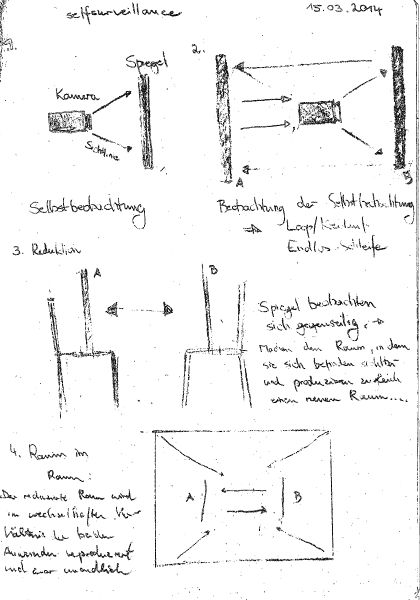 selfsurveillance
15.03.2014
1.
Kamera
Spiegel
Selbstbetrachtung
2.
A
B
Betrachtung der Selbstbetrachtung
⇒ Loop/
Endlos-Schleife
3. Reduktion
A
B
Spiegel betrachten
sich gegenseitig. →
Machen den Raum, in dem
sie sich befinden
und produzieren zugleich
einen neuen Raum....
4. Raum im
Raum:
Der Raum wird
im wechselhaften Ver-
hältnis der beiden
reproduziert
und zwar unendlich
A
B